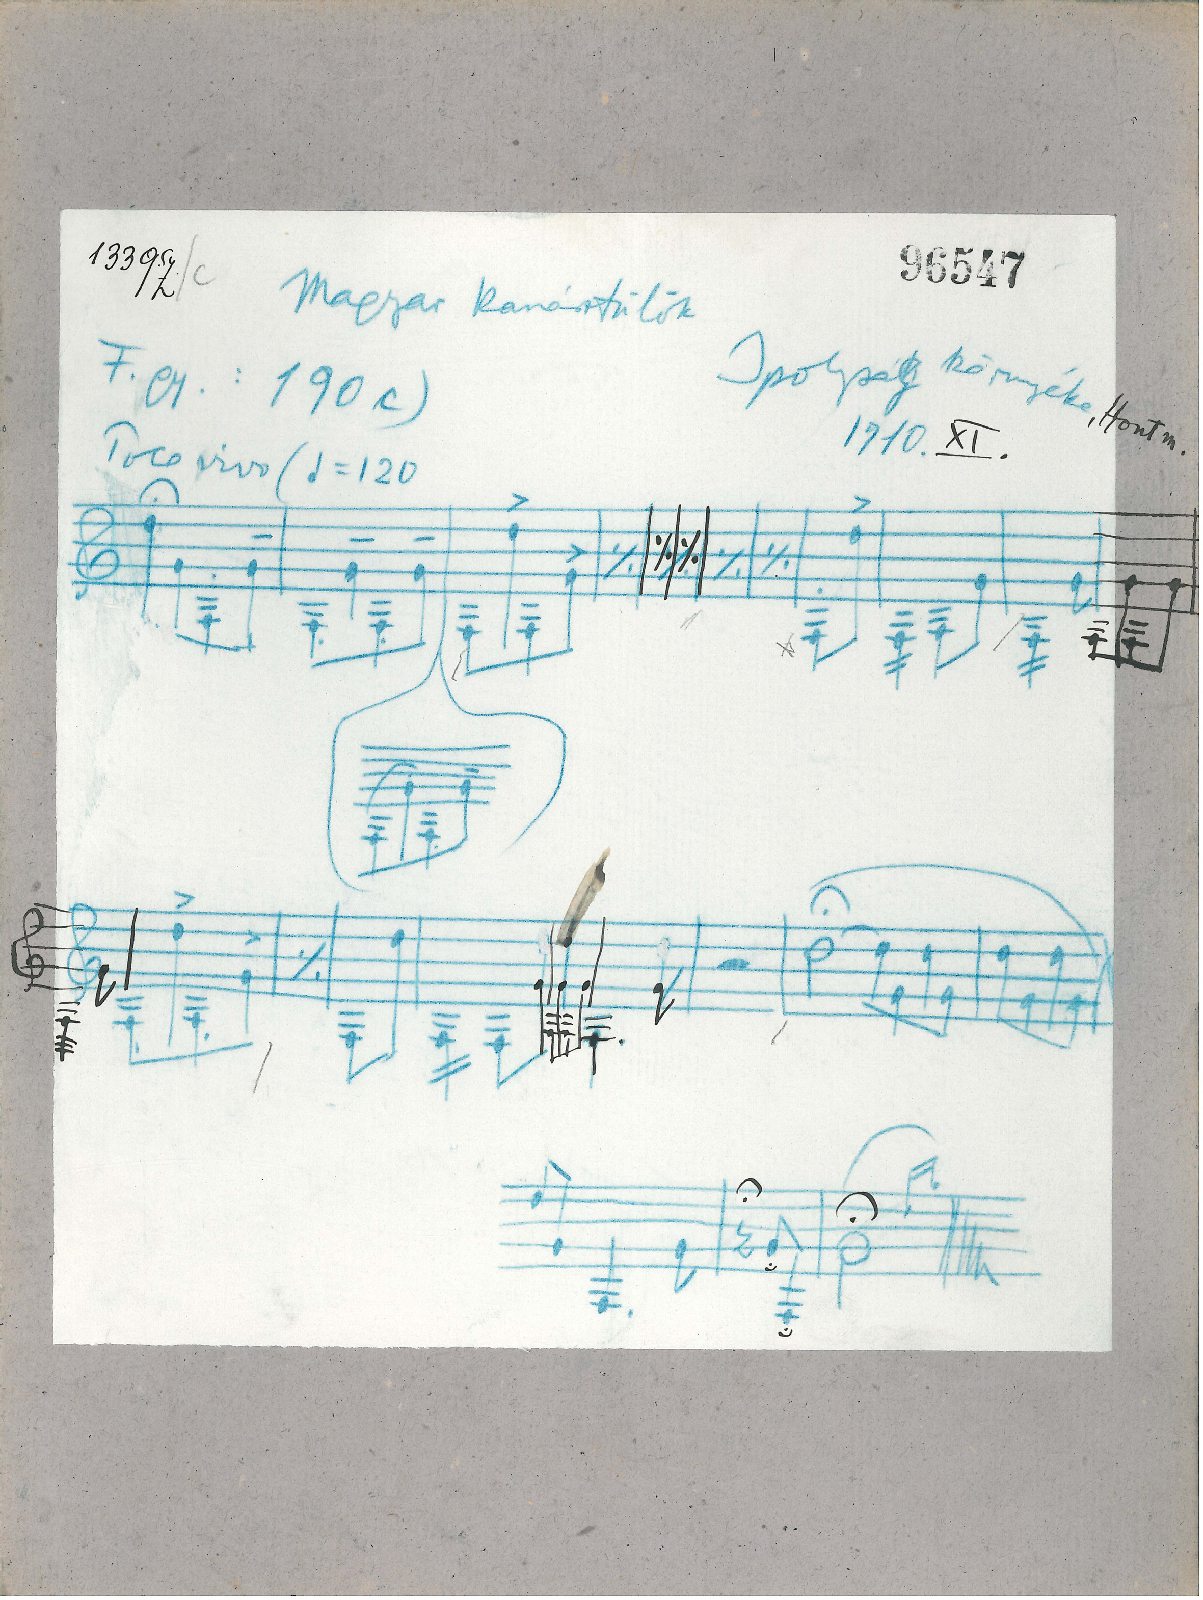 96547
Magyar kanásztülök
F. gy. : 190 c)
Ipolyság környéke, Hont m.
1910. XI.
Poco vivo (♩=120